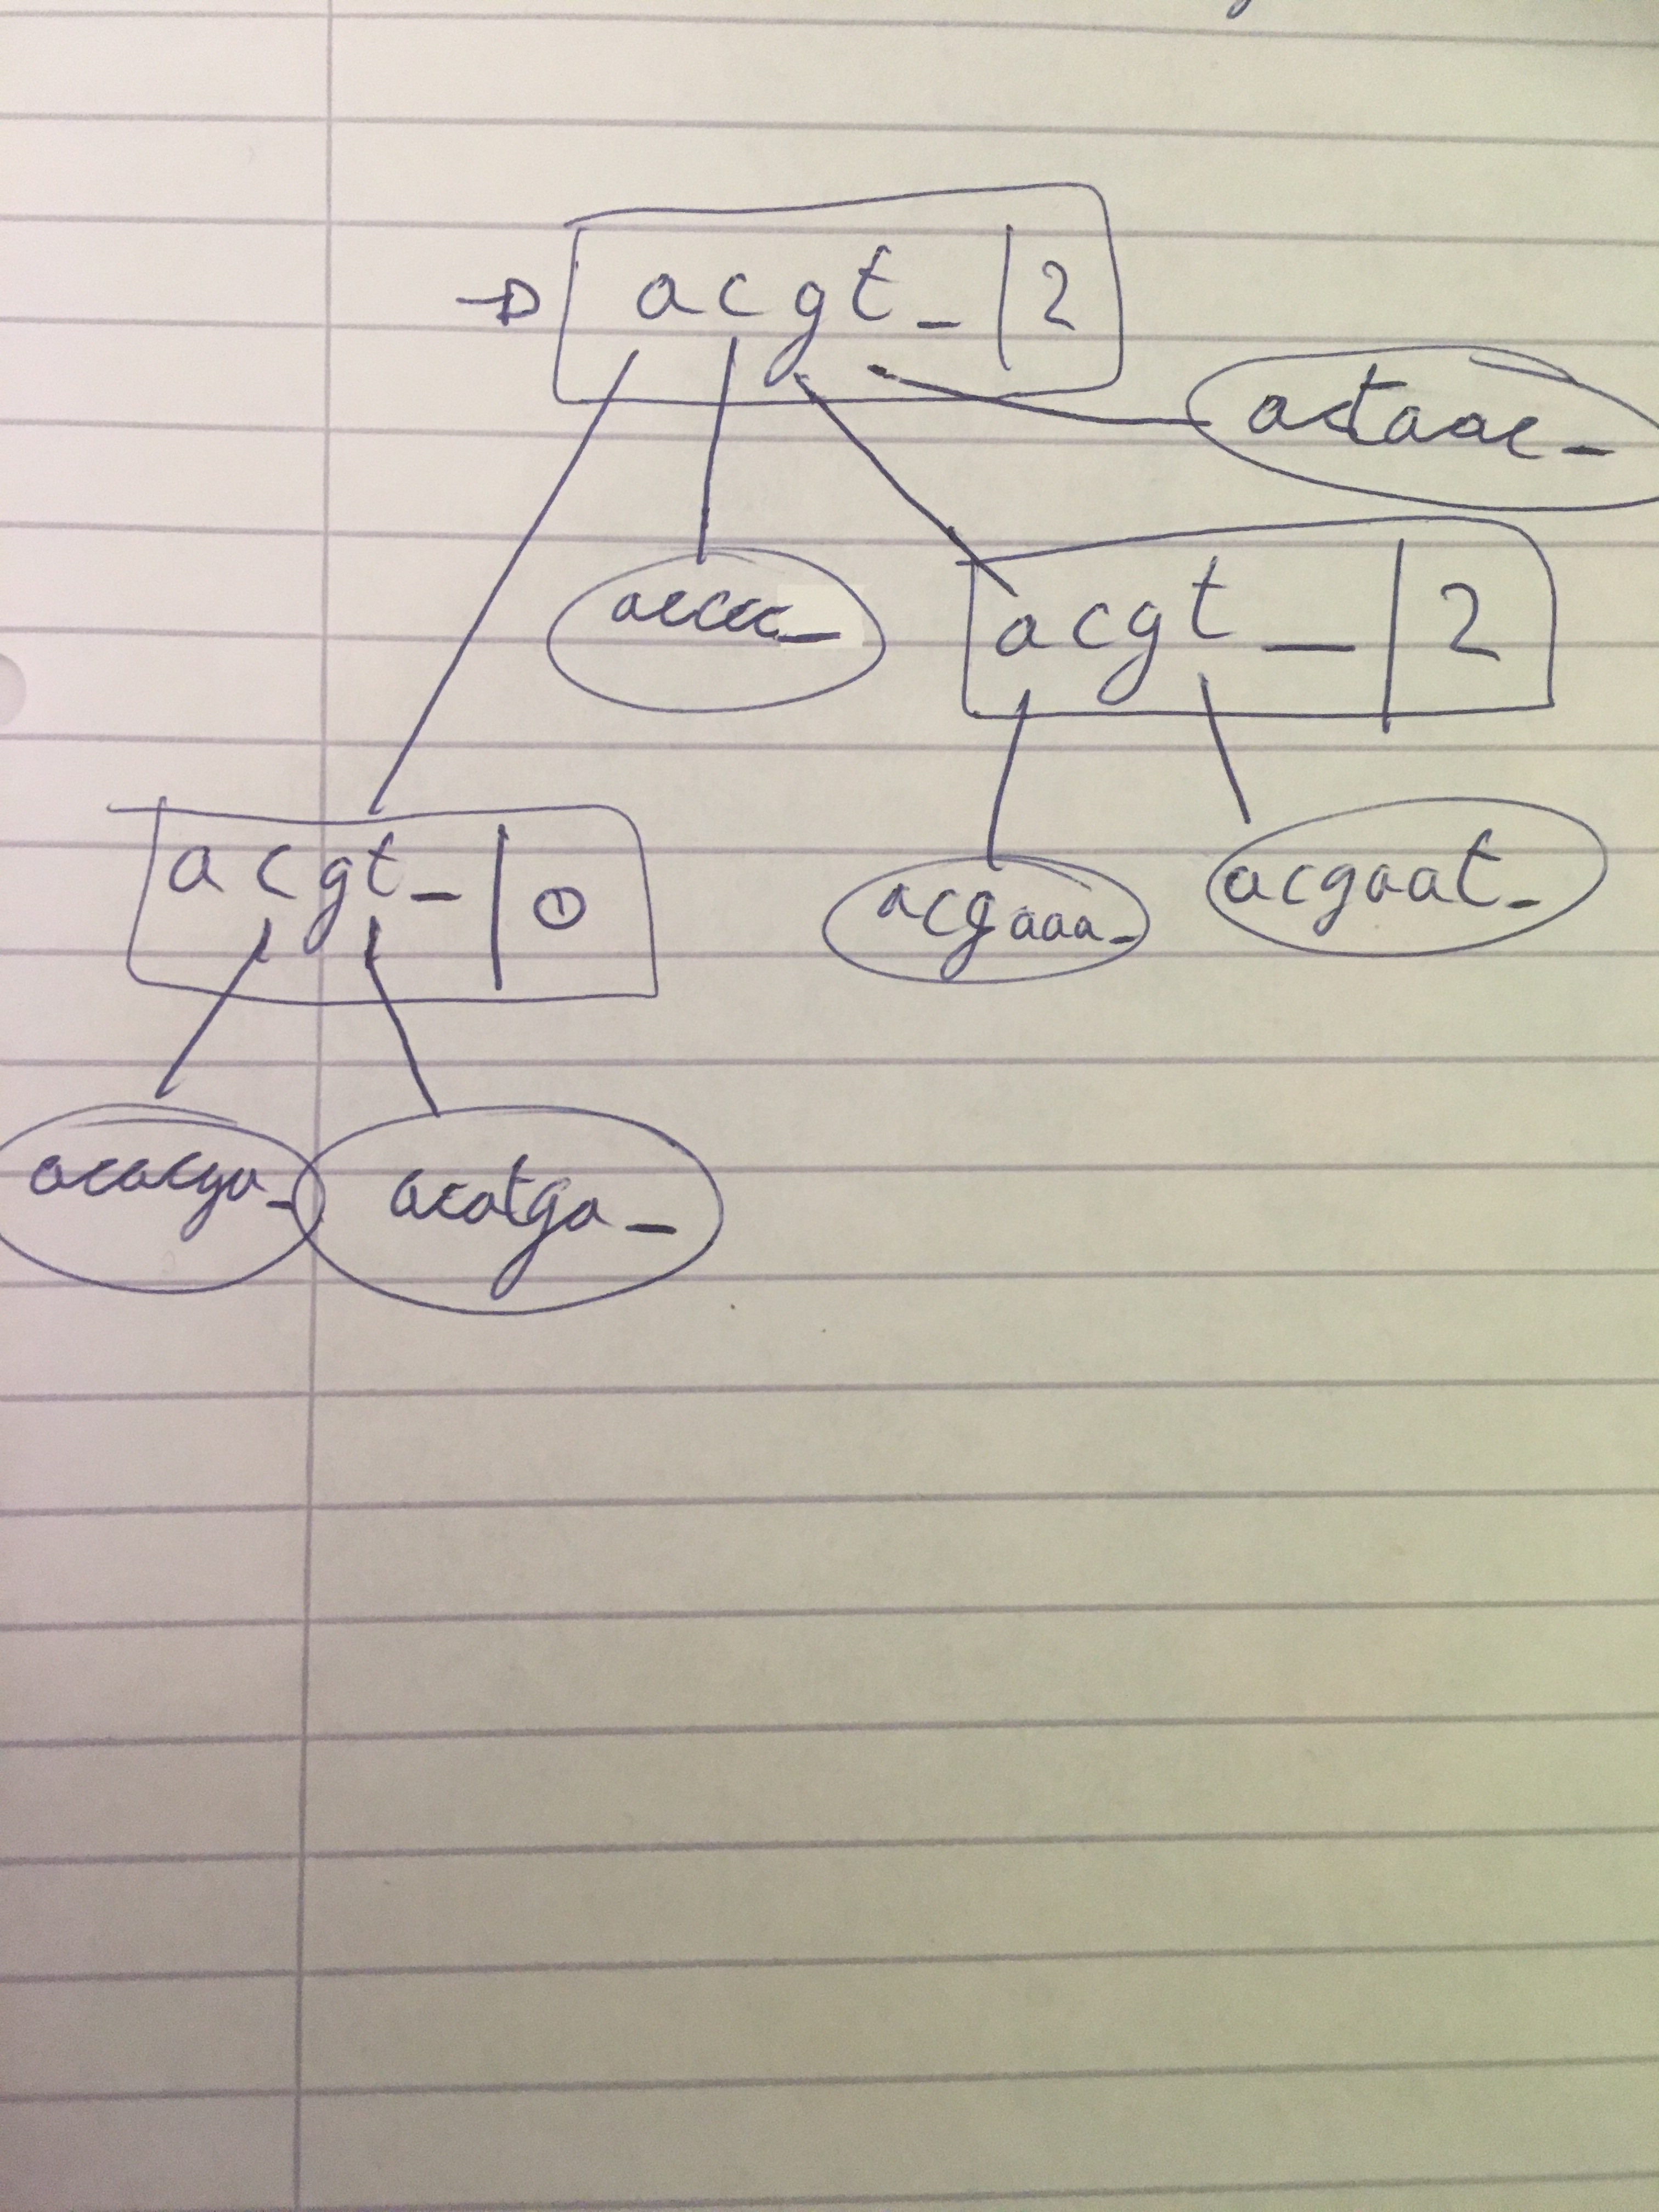 acgt_|2
actaac_
accccc_
acgt_|2
acgt_|0
acgaaa_
acgaat_
acacga_
acatga_